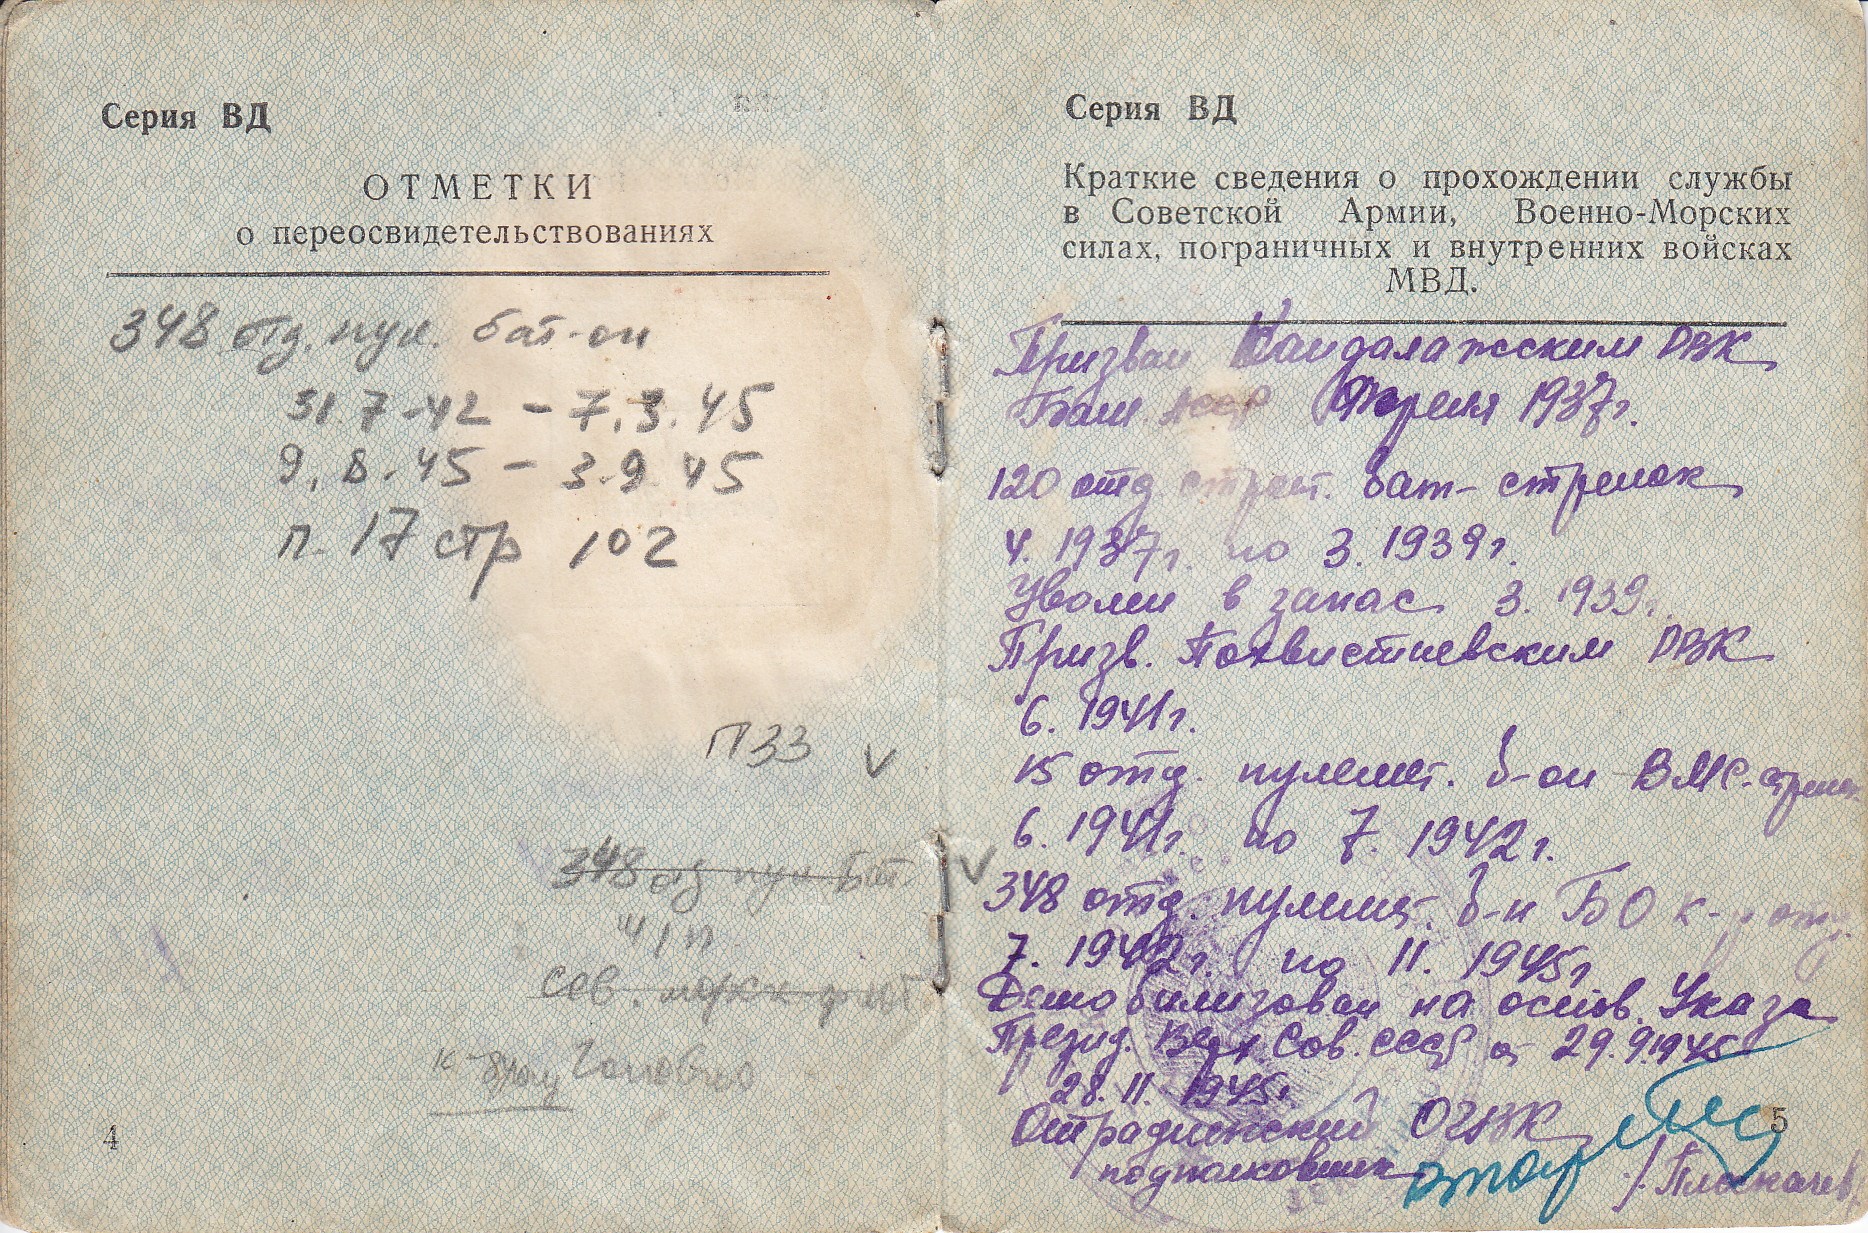 Серия ВД
ОТМЕТКИ
о переосвидетельствованиях
348 отд. пул. бат-он
31.7-42 - 7.3.45
9.8.45 - 3.9 45
п. 17 стр 102
П33 V
348 отд пул бат
41 п
сев.
4
Серия ВД
Краткие сведения о прохождении службы
в Советской Армии, Военно-Морских
силах, пограничных и внутренних войсках
МВД.
Призван РВК
Баш. АССР 1937г.
120 отд строит. бат- стрелок
4. 1937г. по 3. 1939г.
Уволен в запас 3. 1939г.
Призв. Похвистневским РВК
6. 1941г.
15 отд. пулемет. б-он ВМС-стрелок
6. 1941г. по 7. 1942г.
V 348 отд. пулемет. б-н БО к-р отд.
7. 1942г. по 11. 1945г
Демобилизован на основ. Указа
Презид. Верх. Сов. СССР от 29.9.1945
28. 11. 1945г.
Отрадненский ОГВК
подполковник
5